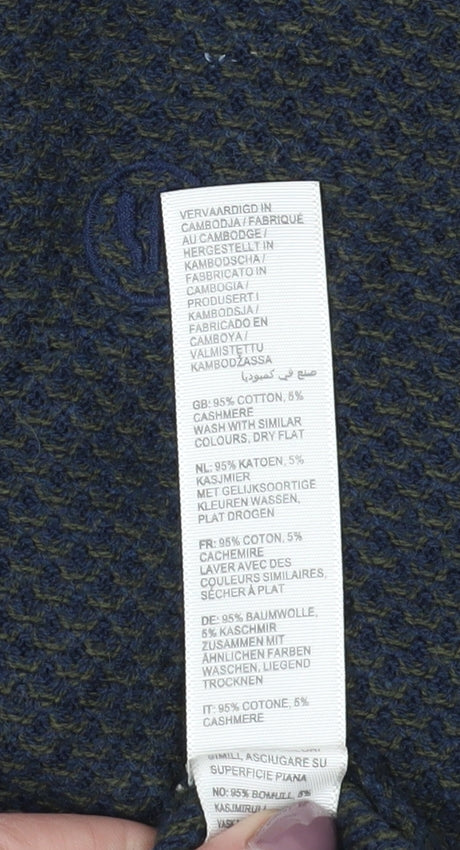 VERVAARDIGD IN
CAMBODJA / FABRIQUÉ
AU CAMBODGE /
HERGESTELLT IN
KAMBODSCHA /
FABBRICATO IN
CAMBOGIA /
PRODUSERT I
KAMBODSJA /
FABRICADO EN
CAMBOYA /
VALMISTETTU
KAMBODŽASSA
صنع في كمبوديا
GB: 95% COTTON, 5%
CASHMERE
WASH WITH SIMILAR
COLOURS, DRY FLAT
NL: 95% KATOEN, 5%
KASJMIER
MET GELIJKSOORTIGE
KLEUREN WASSEN,
PLAT DROGEN
FR: 95% COTON, 5%
CACHEMIRE
LAVER AVEC DES
COULEURS SIMILAIRES,
SÉCHER À PLAT
DE: 95% BAUMWOLLE,
5% KASCHMIR
ZUSAMMEN MIT
ÄHNLICHEN FARBEN
WASCHEN, LIEGEND
TROCKNEN
IT: 95% COTONE, 5%
CASHMERE
SIMILI, ASCIUGARE SU
SUPERFICIE PIANA
NO: 95% BOMULL, 5%